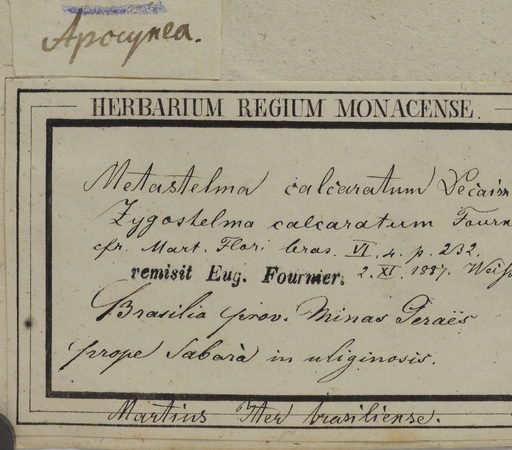 Apocynea.
HERBARIUM REGIUM MONACENSE.
Metastelma calcaratum Decaisn
Zygostelma calcaratum Fourn
cfr. Mart. Flor. bras. VI. 4. p. 232.
remisit Eug. Fournier. 2. XI. 1887. Weiss
Brasilia prov. Minas Geraës
prope Sabarà in uliginosis.
Martius Iter brasiliense.